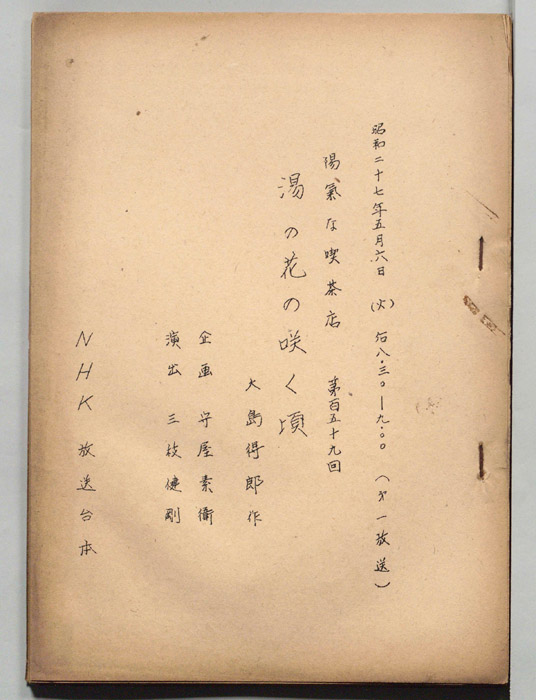 昭和二十七年五月六日 (火) 后八.三〇―九.〇〇 (才一放送)
陽氣な喫茶店 第百五十九回
湯の花の咲く頃
大島得郎 作
企画 守屋素衛
演出 三枝健剛
NHK放送台本